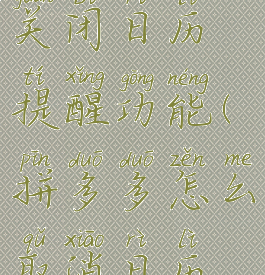 guān bì rì lì
关闭日历
tí xǐng gōng néng
提醒功能(
pīn duō duō zěn me
拼多多怎么
qǔ xiāo rì lì
取消日历